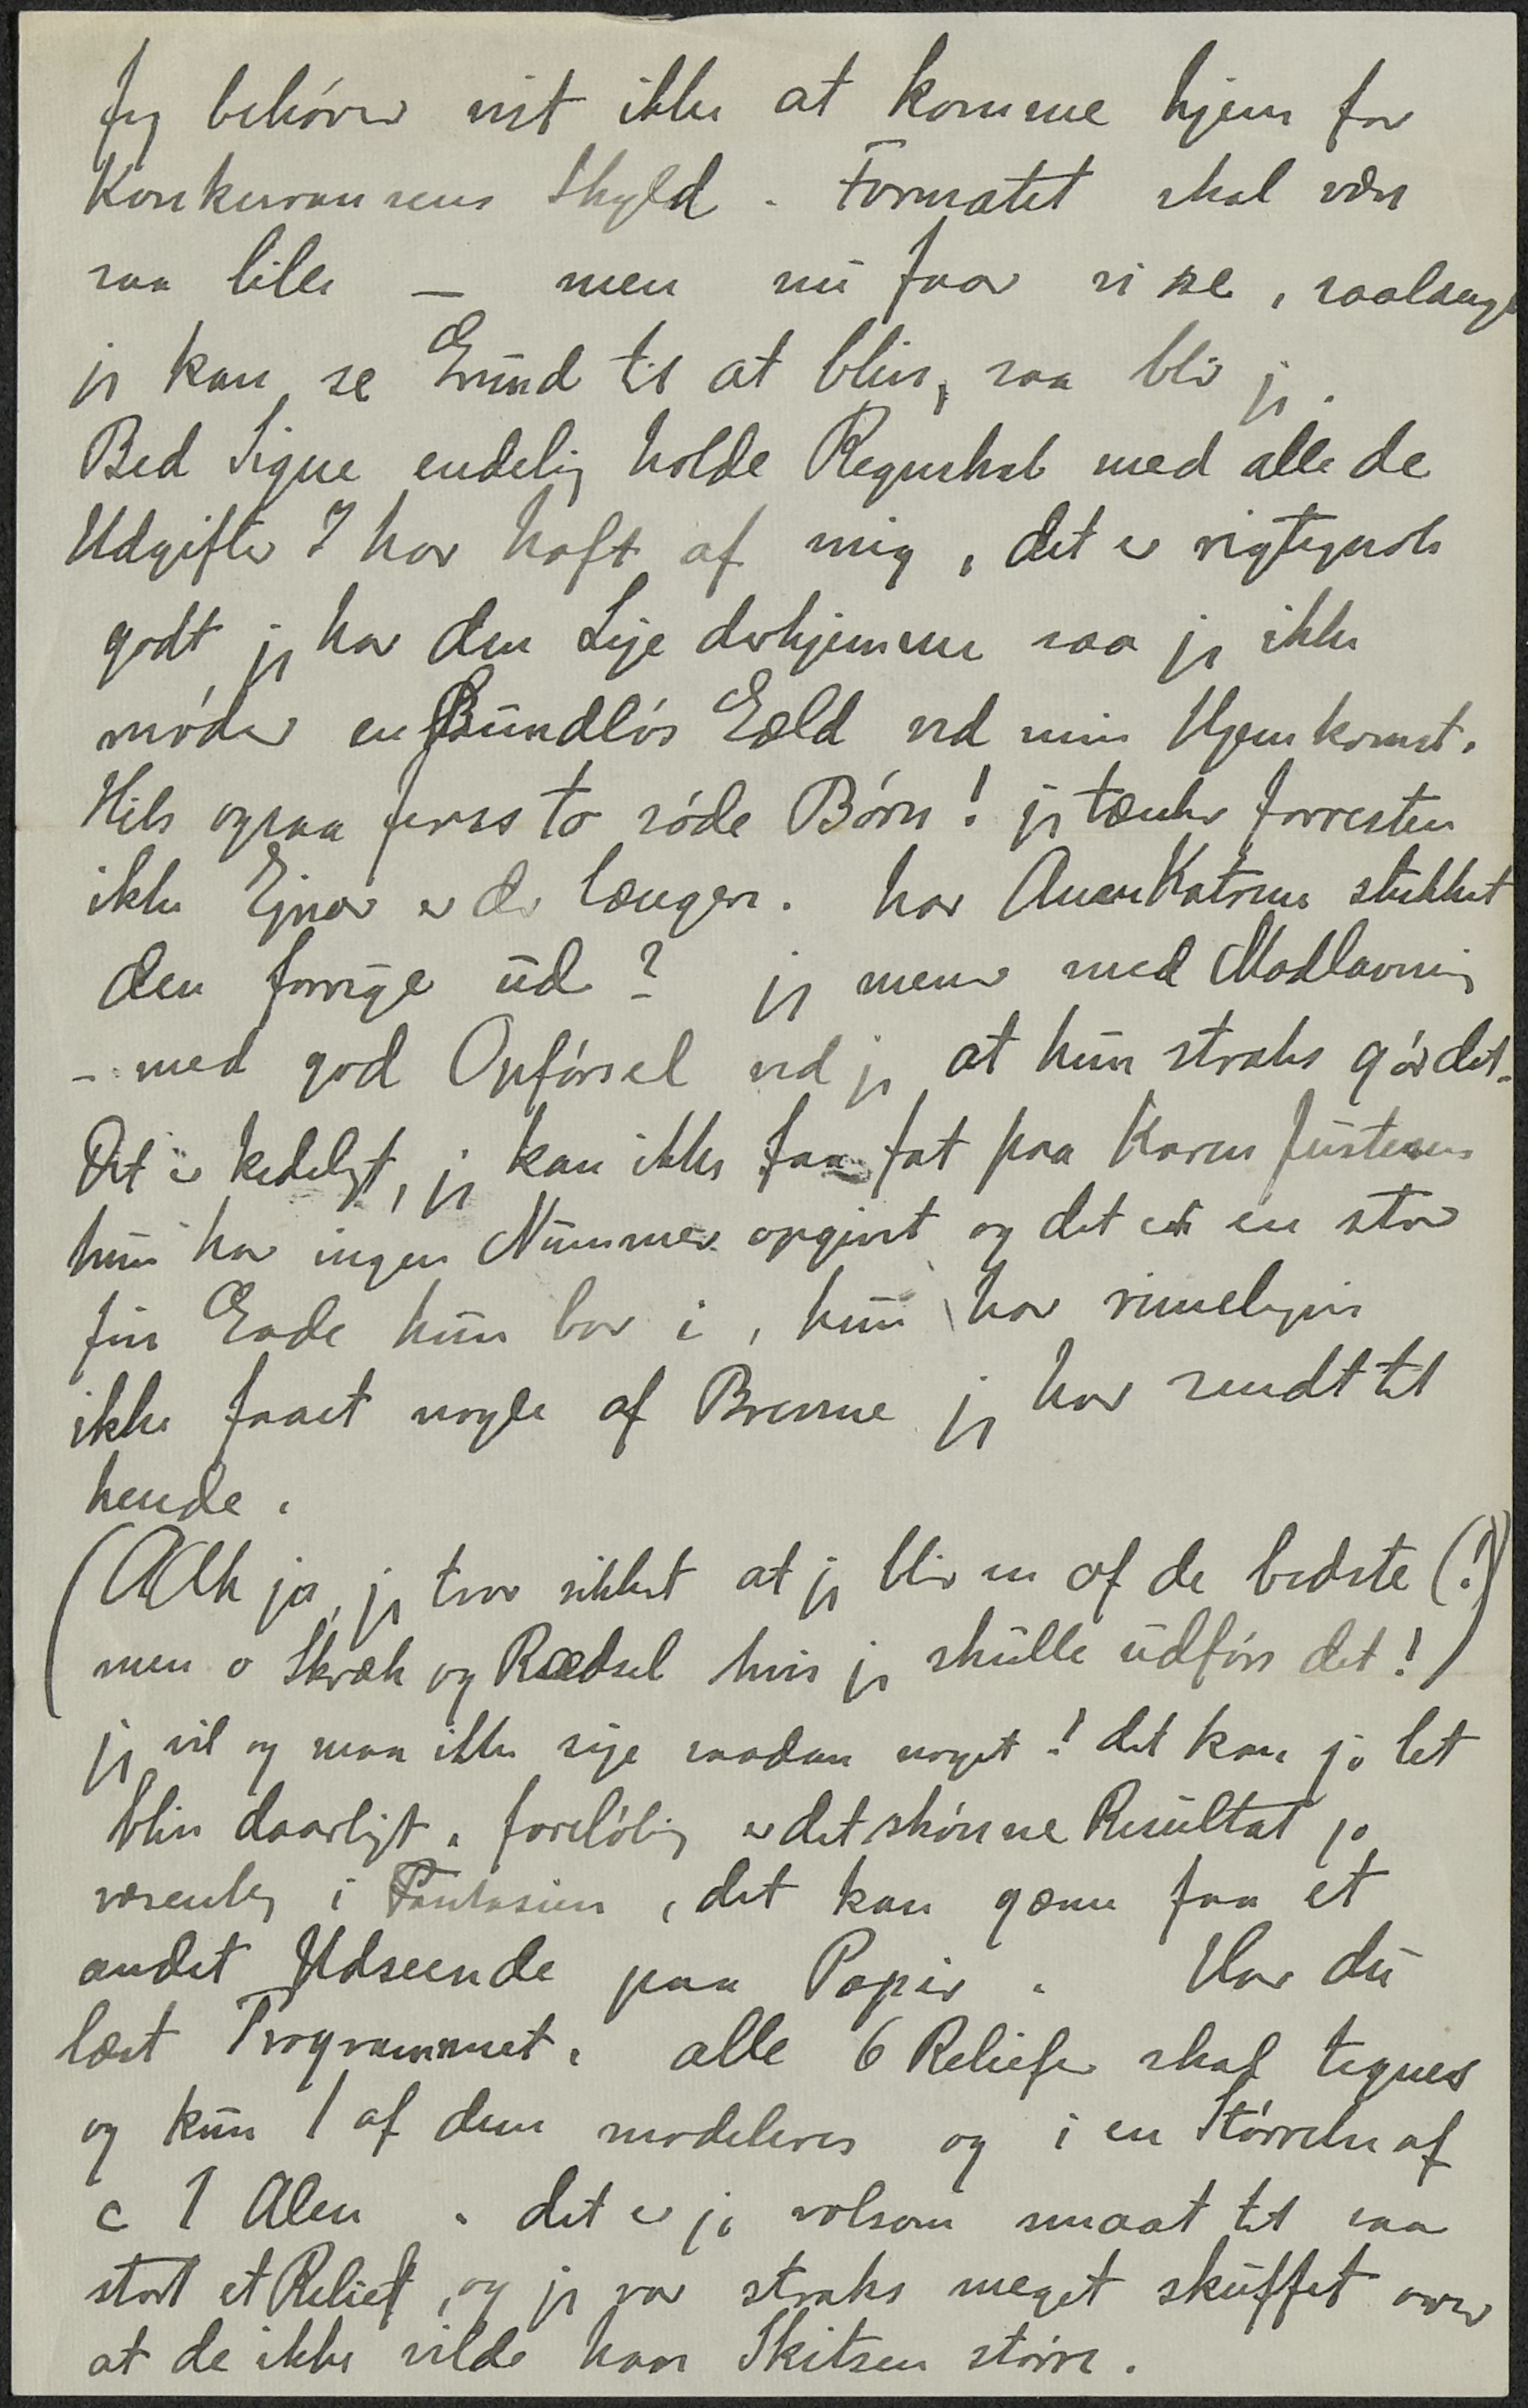 Jeg behøver vist ikke at komme hjem for
Konkurransens Skyld. Formatet skal være
saa lille – men nu faar vi se, saalænge
jeg kan se Grund til at blive, saa blir jeg.
Bed Signe endelig holde Regnskab med alle de
Udgifter I har haft af mig, det er rigtignok
godt jeg har den Leje derhjemme saa jeg ikke
møder en Bundløs Gæld ved min Hjemkomst.
Hils ogsaa jeres to søde Børn! jeg tænker forresten
ikke Ejnar er der længere. har AnneKatrine stukket
den forrige ud? jeg mener med Madlavning
– med god Opførsel ved jeg at hun straks gør det.
Det er kedeligt, jeg kan ikke faa fat paa Karen Justesen
hun har ingen Nummer opgivet og det er en stor
fin Gade hun bor i, hun har rimeligvis
ikke faaet nogle af Brevene jeg har sendt til
hende.
(Aahh ja, jeg tror sikkert at jeg blir en af de bedste (!)
men o Skræk og Rædsel hvis jeg skulle udføre det!)
jeg vil og maa ikke sige saadan noget! det kan jo let
blive daarligt. foreløbig er det skønne Resultat jo
væsentlig i Fantasien, det kan gærne faa et
andet Udseende paa Papir. Har du
læst Programmet. alle 6 Relieffer skal tegnes
og kun 1 af dem modeleres og i en Størrelse af
c 1 Alen. det er jo volsom smaat til saa
stort et Relief, og jeg var straks meget skuffet over
at de ikke vilde have Skitsen større.